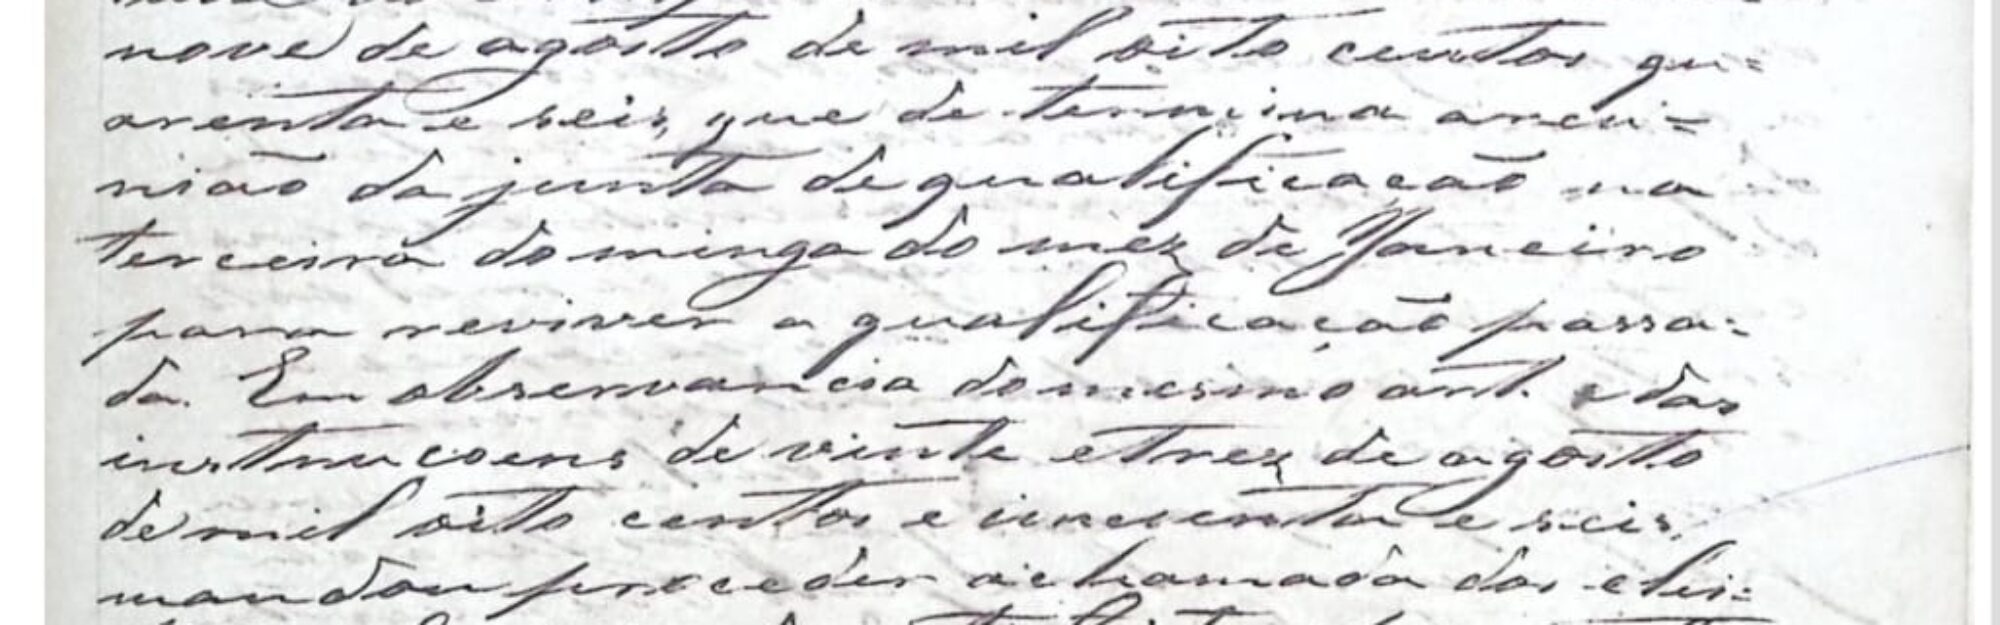 nove de agosto de mil oito centos qu=
arenta e seis, que de termina areu=
nião da junta de qualificação na
terceira dominga do mez de Janeiro
para reviver a qualificação passa=
da. Em observancia do mesmo art. e das
instrucoens de vinte e trez de agosto
de mil oito centos e cincuenta e seis,
mandou proceder a chamada dos elei=